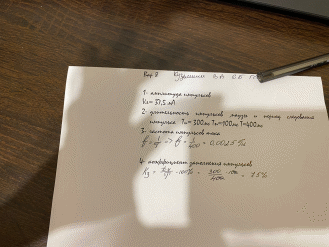 Вар. 8
1- амплитуда импульсов
37,5 мА
2- длительность импульсов паузы и период следования
импульса Tи=300мс Tп=100мс T=400мс
3- частота импульсов тока
f = 1/T => f = 1/400 = 0,0025 Гц
4- коэффициент заполнения импульсов
Kз = ·100% = 300/400 = 75%